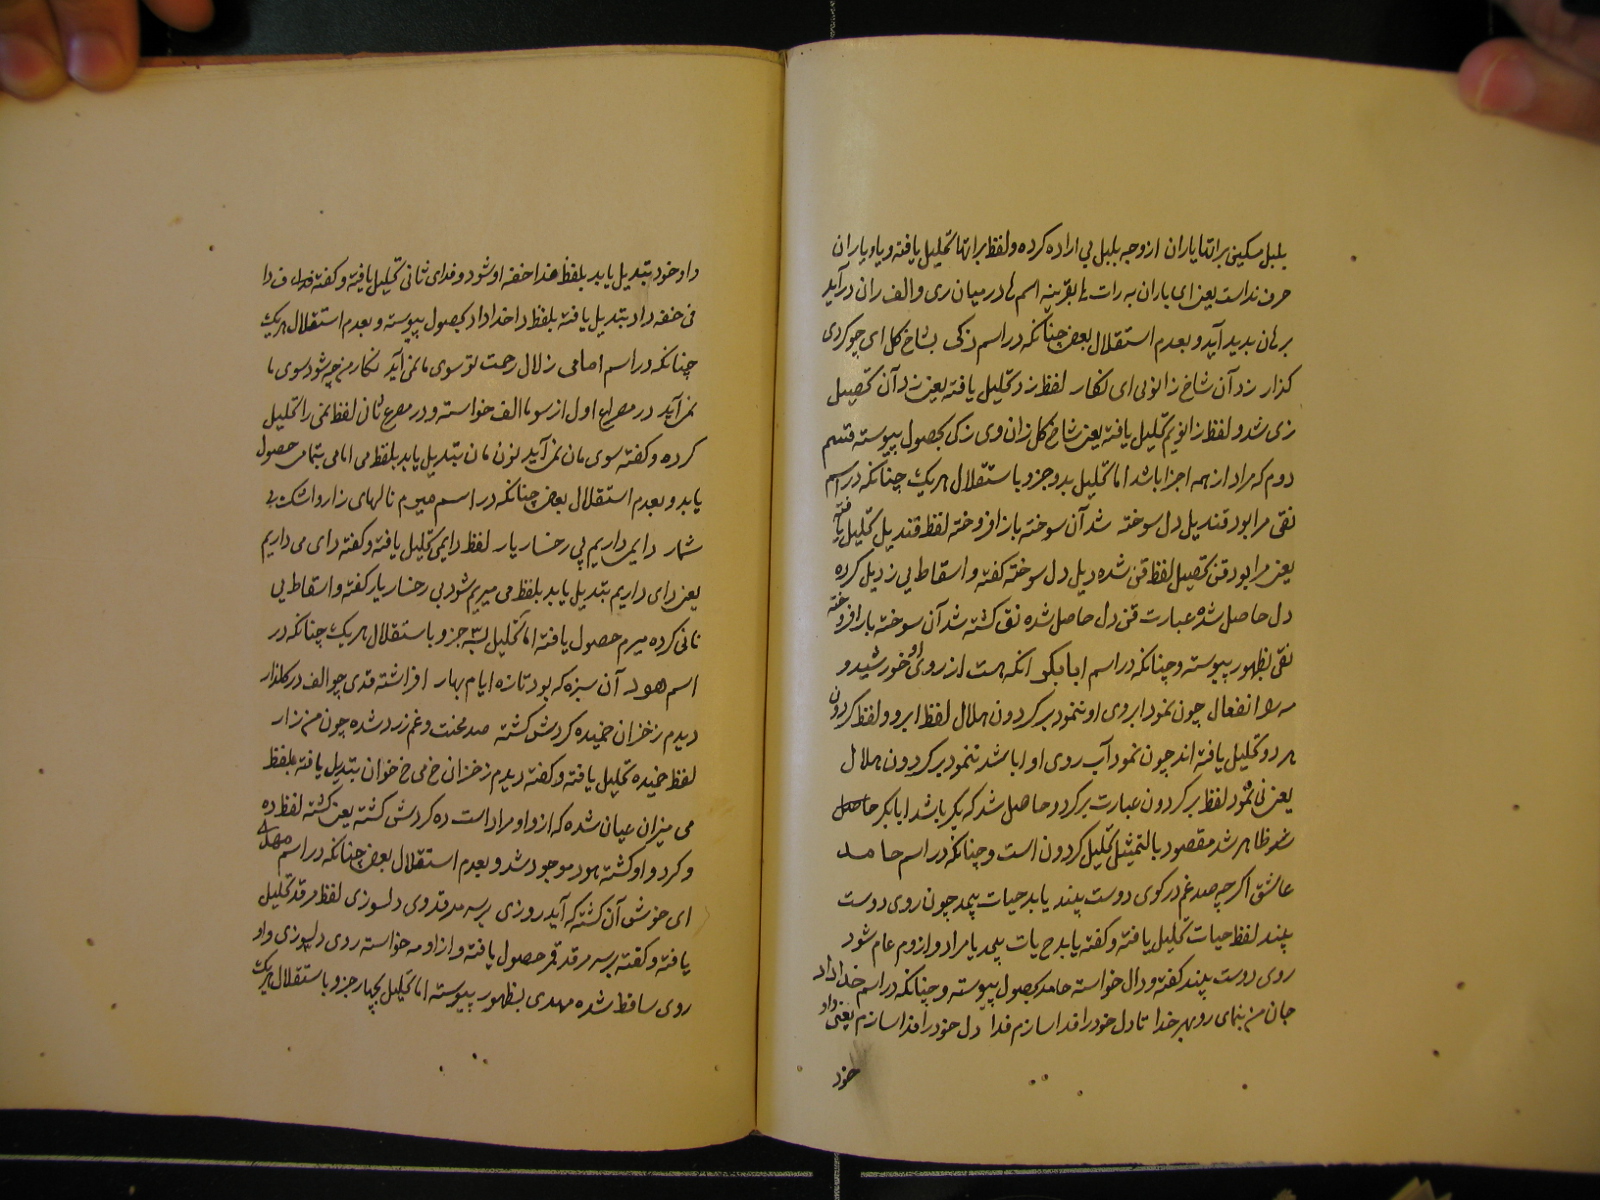 بلبل مسکینی براتها یاران از وجه بلبل بی اراده کرده و لفظ براتها تحلیل یافته و یاو یاران
حرف نداست یعنی ای یاران به رات ها بقرینه اسم ها در میان ری و الف ران درآید
برهان پدید آید و بعدم استقلال بعض چنانکه در اسم زکی بشاخ کل ای جو کردی
کذار زد آن شاخ زانوبی ای نکار لفظ زد تحلیل یافته یعنی زد آن تحصیل
زی شد و لفظ زانویم تحلیل یافته یعنی شاخ کل زان وی زکی بحصول پیوسته قسم
دوم که مراد از همه اجزا باشد اما تحلیل بدو جزو باستقلال هر یک چنانکه در اسم
نقی مرا بود قندیل دل سوخته شد آن سوخته باز افروخته لفظ قندیل تحلیل یافته
یعنی مرا بود قن تحصیل لفظ قن شده دیل دل سوخته کفته و اسقاط یی ز دیل کرده
دل حاصل شده عبارت قن دل حاصل شده نق کشته شد آن سوخته باز افروخته
نقی بظهور پیوسته و چنانکه در اسم ابابکر انکه هست از روی او خورشید و
مه را انفعال چون نمود ابروی او ننمود بر کردون هلال لفظ ابرو و لفظ کردون
هر دو تحلیل یافته اند چون نمود آب روی او ابا شد ننمود بر کردون هلال
یعنی نی نمود لفظ بر کردون عبارت بر کرد و حاصل شد که بکر باشد ابابکر حاصل
ظاهر شد مقصود بالتمثیل تحلیل کردون است و چنانکه در اسم حامد
عاشق اکر چه صد غم در کوی دوست بیند یابد حیات بیحد چون روی دوست
بیند لفظ حیات تحلیل یافته و کفته یابد ح یات بیحد یا مراد و از وم عام شود
روی دوست بیند کفته و دال خواسته حامد بحصول پیوسته و چنانکه در اسم خداداد
جان من بنمای رو بهر خدا تا دل خود را فدا سازم فدا دل خود را فدا سازم یعنی داو
خود
داو خود تبدیل یابد بلفظ فدا خفه او شود و فدای ثانی تحلیل یافته و کفته ف دا
فی خفه داد تبدیل یافته بلفظ دا خداداد بحصول پیوسته و بعدم استقلال هر یک
چنانکه در اسم امامی زلال رحمت تو سوی ما نمی آید نکار من چه شود سوی ما
نمی آید در مصراع اول از سو ما الف خواسته و در مصرع ثان لفظ نمی را تحلیل
کرده و کفته سوی مان نمی آید نون مان تبدیل یابد بلفظ می امامی بتمامی حصول
یابد و بعدم استقلال بعض چنانکه در اسم میرم نالهای زار و اشک بی
شمار دایمی داریم پی رخسار یار لفظ دایمی تحلیل یافته و کفته دای می داریم
یعنی دای داریم تبدیل یابد بلفظ می میریم شود بی رخسار یار کفته و اسقاط یی
ثانی کرده میرم حصول یافته اما تحلیل بسه جزو باستقلال هر یک چنانکه در
اسم هود آن سبزه که بود تازه ایام بهار افراشته قدی چو الف در کلزار
دیدم ز خزان خمیده کردش کشته صد محنت و غم زرد شده چون من زار
لفظ خمیده تحلیل یافته و کفته دیدم ز خزان خ می خ خوان تبدیل یافته بلفظ
می میزان عیان شده که ازو او مراد است ده کردش کشته یعنی کشته لفظ ده
و کرد و او کشته هود موجود شد و بعدم استقلال بعض چنانکه در اسم مهدی
ای خوش آن کشته که آید روزی بر سه مرقد وی دلسوزی لفظ مرقد تحلیل
یافته و کفته بر سه مرقد قمر حصول یافته و از او مه خواسته روی دلسوزی واو
روی ساقط شده مهدی بظهور پیوسته اما تحلیل بچهار جزو باستقلال هر یک